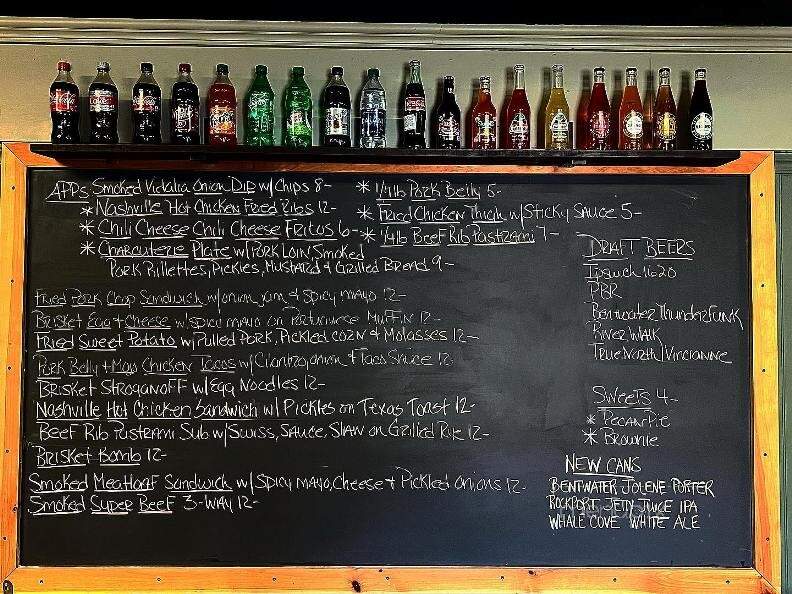 APPs Smoked Vidalia Onion Dip w/ Chips 8-
* Nashville Hot Chicken Fried Ribs 12-
* Chili Cheese Chili Cheese Fritos 6-
* Charcuterie Plate w/ Pork Loin, Smoked
Pork Rillettes, Pickles, Mustard & Grilled Bread 9-
* 1/4 lb Pork Belly 5-
* Fried Chicken Thigh w/ Sticky Sauce 5-
* 1/4 lb Beef Rib Pastrami 7-
Fried Pork Chop Sandwich w/ onion jam & spicy mayo 12-
Brisket Egg & Cheese w/ spicy mayo on Portuguese Muffin 12-
Fried Sweet Potato w/ Pulled Pork, Pickled corn & Molasses 12-
Pork Belly & Mojo Chicken Tacos w/ Cilantro, onion & Taco Sauce 12-
Brisket Stroganoff w/ Egg Noodles 12-
Nashville Hot Chicken Sandwich w/ Pickles on Texas Toast 12-
Beef Rib Pastrami Sub w/ Swiss, Sauce, Slaw on Grilled Rye 12-
Brisket Bomb 12-
Smoked Meatloaf Sandwich w/ Spicy mayo, Cheese & Pickled onions 12-
Smoked Super Beef 3-way 12-
DRAFT BEERS
Ipswich
PBR
Bentwater Thunderfunk
River Walk
True North/
Sweets 4-
* Pecan Pie
* Brownie
NEW CANS
BENTWATER JOLENE PORTER
ROCKPORT JETTY JUICE IPA
WHALE COVE WHITE ALE